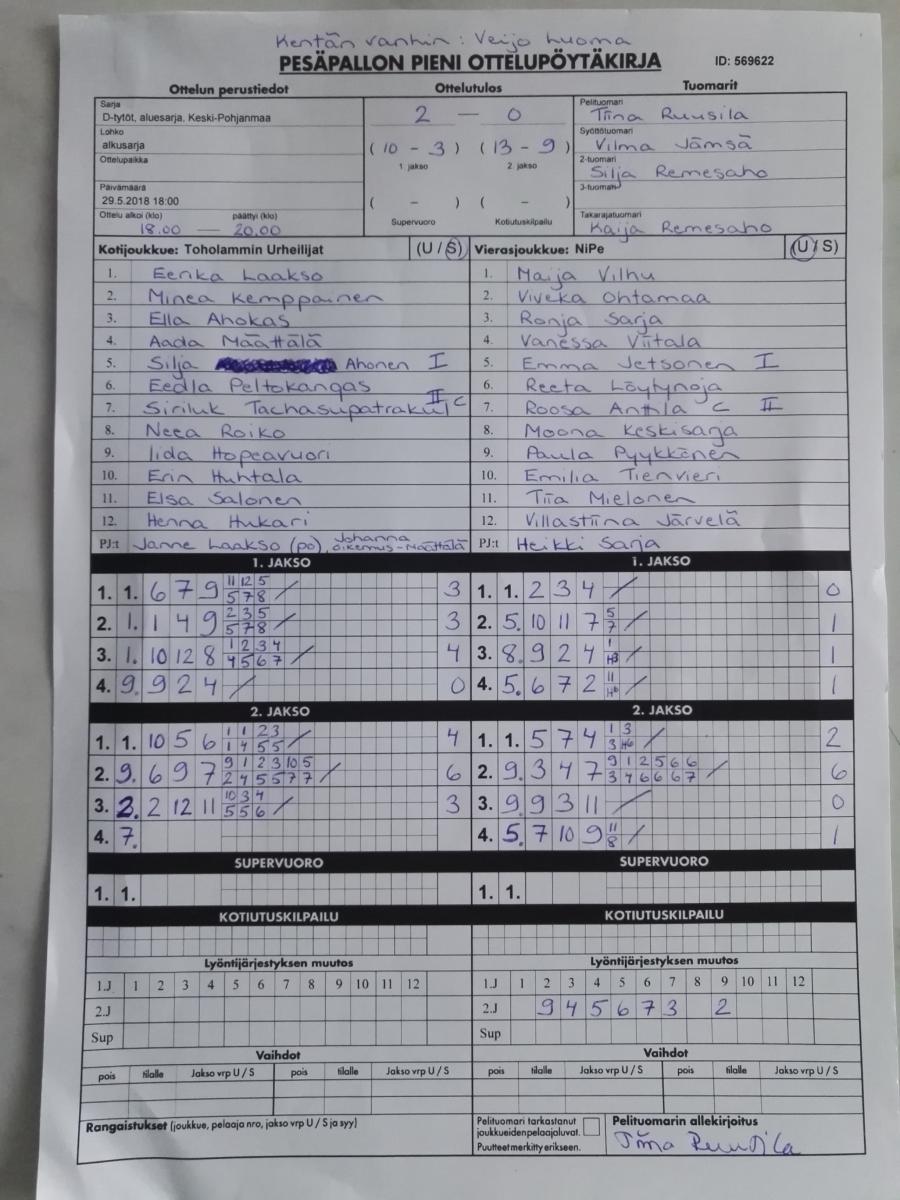 Kentän vanhin: Veijo Luoma
PESÄPALLON PIENI OTTELUPÖYTÄKIRJA ID: 569622
Ottelun perustiedot Ottelutulos Tuomarit
Sarja
D-tytöt, aluesarja, Keski-Pohjanmaa
Lohko
alkusarja
Ottelupaikka
Päivämäärä
29.5.2018 18:00
Ottelu alkoi (klo) päättyi (klo)
18.00 — 20.00
2 — 0
(10 - 3) (13 - 9)
1. jakso 2. jakso
( - ) ( - )
Supervuoro Kotiutuskilpailu
Pelituomari
Tiina Ruusila
Syöttötuomari
Vilma Jämsä
2-tuomari
Silja Remesaho
3-tuomari
Takarajatuomari
Kaija Remesaho
Kotijoukkue: Toholammin Urheilijat (U / S) Vierasjoukkue: NiPe (U / S)
1. Eerika Laakso 1. Maija Vilhu
2. Minea Kemppainen 2. Viveka Ohtamaa
3. Ella Ahokas 3. Ronja Sarja
4. Aada Määttälä 4. Vanessa Viitala
5. Silja Ahonen I 5. Emma Jetsonen I
6. Eedla Peltokangas 6. Reeta Löytynoja
7. Siriluk Tachasupatrakul C II 7. Roosa Anttila C II
8. Neea Roiko 8. Moona Keskisarja
9. Iida Hopeavuori 9. Paula Pyykkönen
10. Erin Huhtala 10. Emilia Tienvieri
11. Elsa Salonen 11. Tiia Mielonen
12. Henna Hukari 12. Villastiina Järvelä
PJ:t Janne Laakso (po), Johanna Oikemus-Määttälä PJ:t Heikki Sarja
1. JAKSO 1. JAKSO
1. 1. 6 7 9 11 12 5 / 3 1. 1. 2 3 4 / 0
5 7 8
2. 1. 1 4 9 2 3 5 / 3 2. 5. 10 11 7 5 / 1
5 7 8 7
3. 1. 10 12 8 1 2 3 4 / 4 3. 8. 9 2 4 1 / 1
4 5 6 7 H3
4. 9. 9 2 4 / 0 4. 5. 6 7 2 11 / 1
H6
2. JAKSO 2. JAKSO
1. 1. 10 5 6 1 1 2 3 / 4 1. 1. 5 7 4 1 3 / 2
1 4 5 5 3 H6
2. 9. 6 9 7 9 1 2 3 10 5 / 6 2. 9. 3 4 7 9 1 2 5 6 6 / 6
2 4 5 5 7 7 3 4 6 6 6 7
3. 2. 2 12 11 10 3 4 / 3 3. 9. 9 3 11 / 0
5 5 6
4. 7. 4. 5. 7 10 9 11 / 1
8
SUPERVUORO SUPERVUORO
1. 1. 1. 1.
KOTIUTUSKILPAILU KOTIUTUSKILPAILU
Lyöntijärjestyksen muutos Lyöntijärjestyksen muutos
1.J 1 2 3 4 5 6 7 8 9 10 11 12 1.J 1 2 3 4 5 6 7 8 9 10 11 12
2.J 2.J 9 4 5 6 7 3 2
Sup Sup
Vaihdot Vaihdot
pois tilalle Jakso vrp U / S pois tilalle Jakso vrp U / S pois tilalle Jakso vrp U / S pois tilalle Jakso vrp U / S
Rangaistukset (joukkue, pelaaja nro, jakso vrp U / S ja syy)
Pelituomari tarkastanut
joukkueiden pelaajaluvat.
Puutteet merkitty erikseen.
Pelituomarin allekirjoitus
Tiina Ruusila